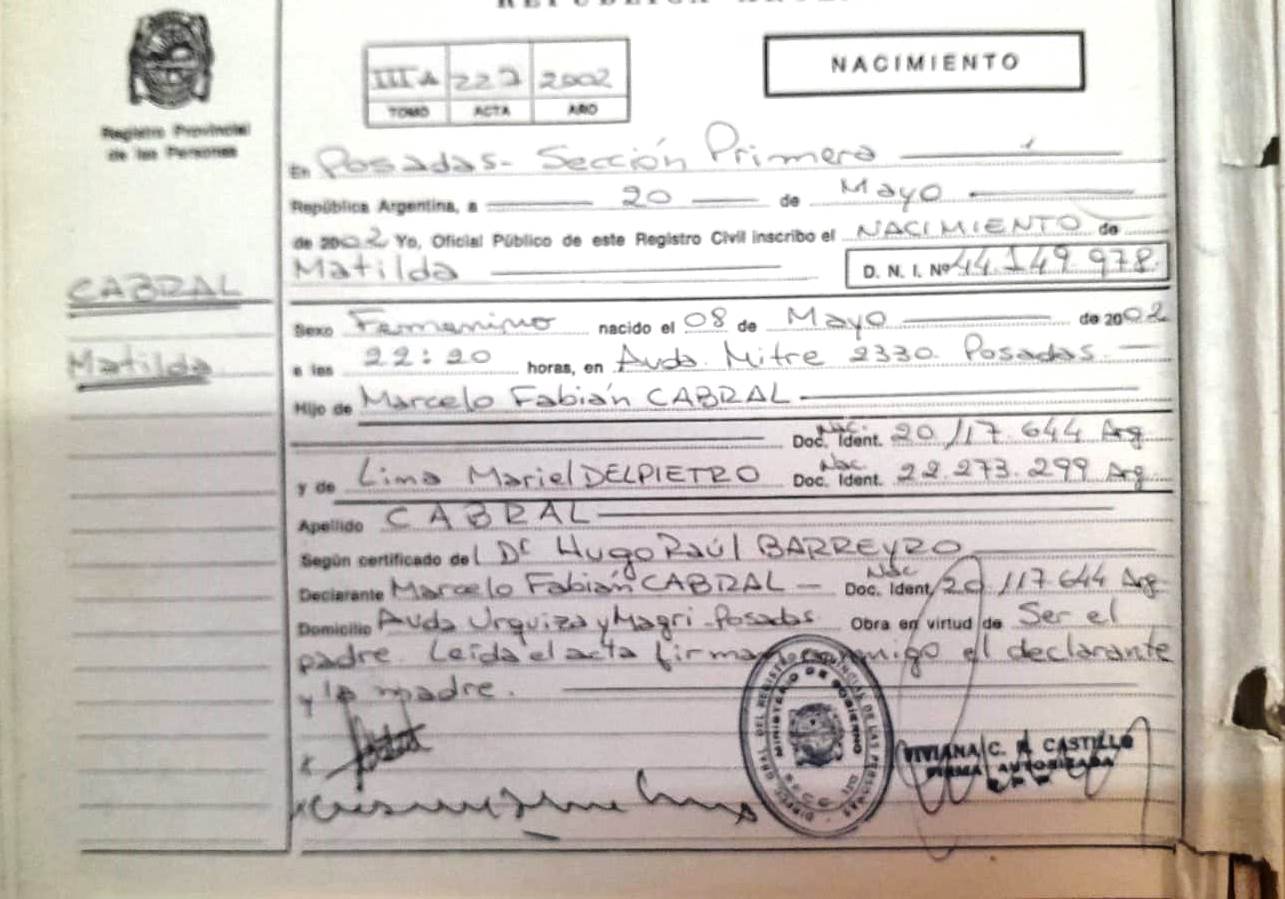 REPÚBLICA
Registro Provincial
de las Personas
III A 227 2002
TOMO ACTA AÑO
NACIMIENTO
CABRAL
Matilda
En Posadas - Sección Primera
República Argentina, a 20 de Mayo
de 2002 Yo, Oficial Público de este Registro Civil inscribo el NACIMIENTO de
Matilda D. N. I. Nº 44.149.978
Sexo Femenino nacido el 08 de Mayo de 2002
a las 22:20 horas, en Avda. Mitre 2330. Posadas.
Hijo de Marcelo Fabián CABRAL
Nac.
Doc. Ident. 20/17.644 Arg.
Nac.
y de Lima Mariel DELPIETRO Doc. Ident. 22.273.299 Arg.
Apellido CABRAL
Según certificado del Dr Hugo Raúl BARREYRO
Nac
Declarante Marcelo Fabián CABRAL - Doc. Ident. 20./17.644 Arg.
Domicilio Avda Urquiza y Magri. Posadas. Obra en virtud de Ser el
padre. Leída el acta firma conmigo el declarante
y la madre.
MINISTERIO DE GOBIERNO
VIVIANA C. CASTILLO
FIRMA AUTORIZADA